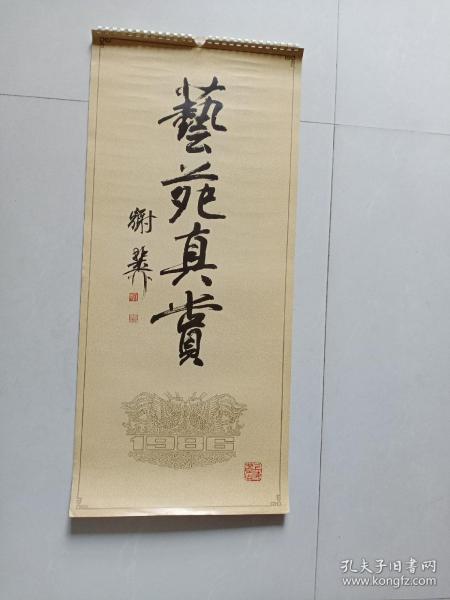 藝苑真賞
1986
孔夫子旧书网
www.kongfz.com